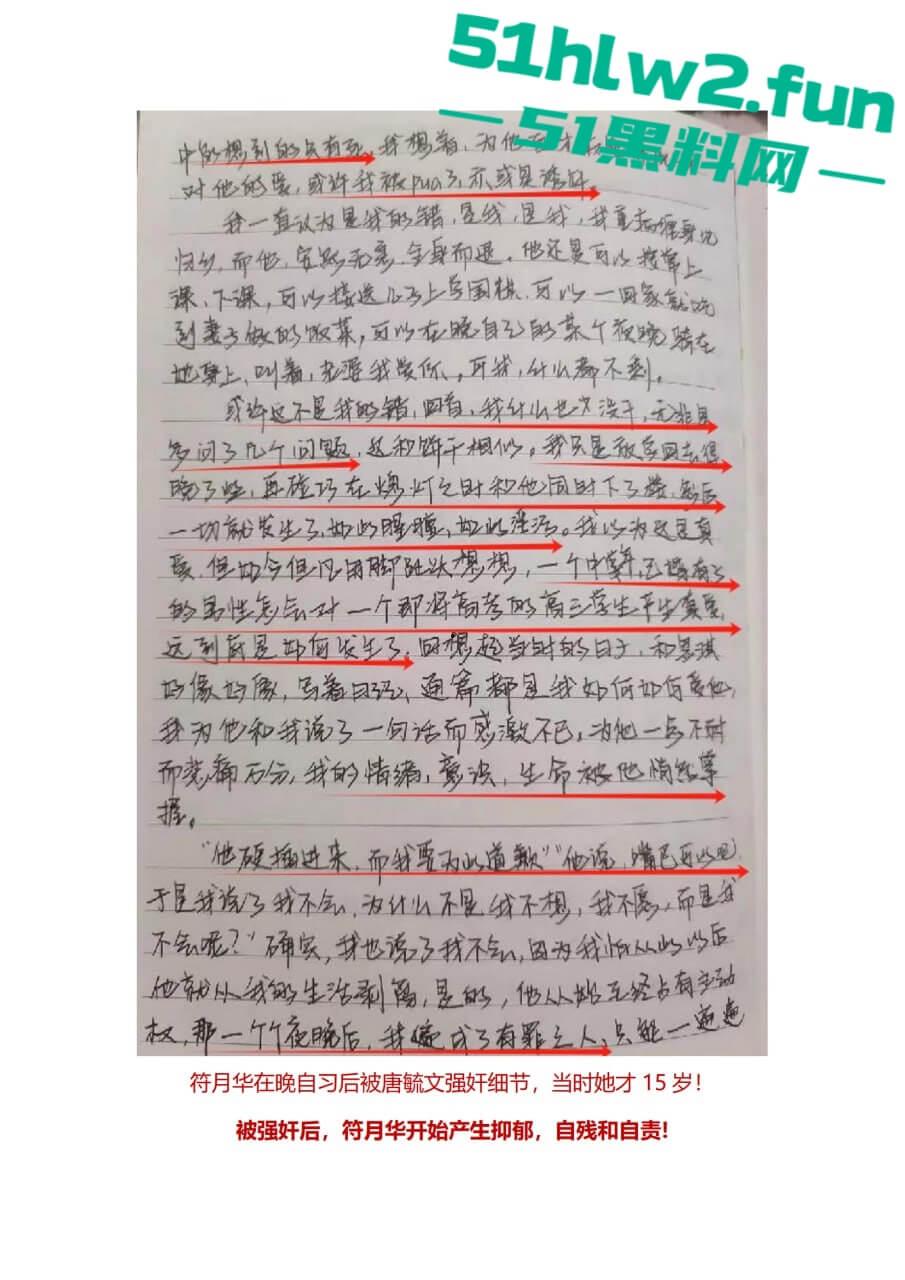 51hlw2.fun
51黑料网
中能想到的只有死。我想着，为他
对他的爱，或许我被pua了，亦或是诱奸。
我一直认为是我的错，是我，是我，我
归乡，而他，安然无恙，全身而退。他还是可以照常上
课，下课，可以接送儿子上学围棋，可以一回家就吃
到妻子做的饭菜，可以在晚自习的某个夜晚骑在
她身上，叫着，老婆我爱你。可我，什么都不剩。
或许这不是我的错，回首，我什么也没干，无非是
多问了几个问题，这和饼干相似。我只是放学回去得
晚了些，再碰巧在熄灯之时和他同时下了楼，然后
一切就发生了，如此腥膻，如此淫活。我以为这是真
爱，但如今但凡用脚趾头想想，一个中年，已婚有子
的男性怎么会对一个即将高考的高三学生产生真爱，
这到底是如何发生了。回想起当时的日子，和思琪
好像好像，写着日记，通篇都是我如何如何爱他，
我为他和我说了一句话而感激不已，为他一点不耐
而悲痛万分，我的情绪，意识，生命被他悄然掌
握。
“他硬插进来，而我要为此道歉”“他说，嘴巴可以吧，
于是我说了我不会，为什么不是我不想，我不愿，而是我
不会呢？”确实，我也说了我不会，因为我怕从此以后
他就从我的生活剥离，是的，他从始至终占有主动
权，那一个个夜晚后，我便成了有罪之人，只能一遍遍
符月华在晚自习后被唐毓文强奸细节，当时她才 15 岁！
被强奸后，符月华开始产生抑郁，自残和自责!